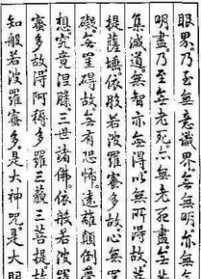 眼界。乃至無意識界。無無明。亦無無
明盡。乃至無老死。亦無老死盡。無苦
集滅道。無智亦無得。以無所得故。菩
提薩埵。依般若波羅蜜多故。心無罣
礙。無罣礙故。無有恐怖。遠離顛倒夢
想。究竟涅槃。三世諸佛。依般若波羅
蜜多故。得阿耨多羅三藐三菩提。故
知般若波羅蜜多。是大神咒。是大明